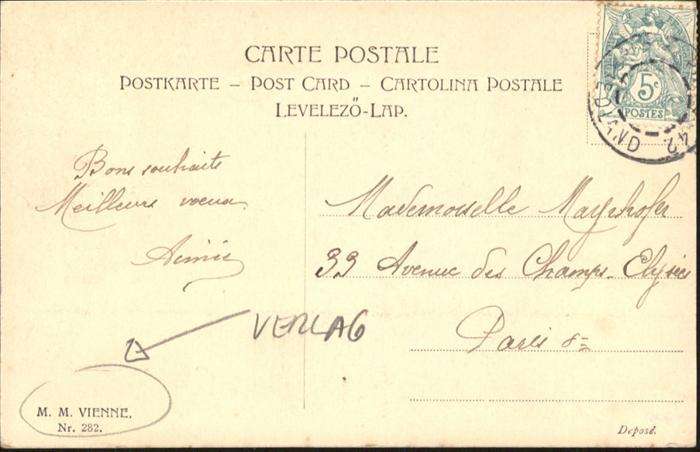 CARTE POSTALE
POSTKARTE – POST CARD – CARTOLINA POSTALE
LEVELEZŐ-LAP.
5c
POSTES
42
Bons souhaits
Meilleurs voeux
Aimée
Mademoiselle Mayerhofer
33 Avenue des Champs-Elysées
Paris 8e
VERLAG
M. M. VIENNE.
Nr. 282.
Deposé.